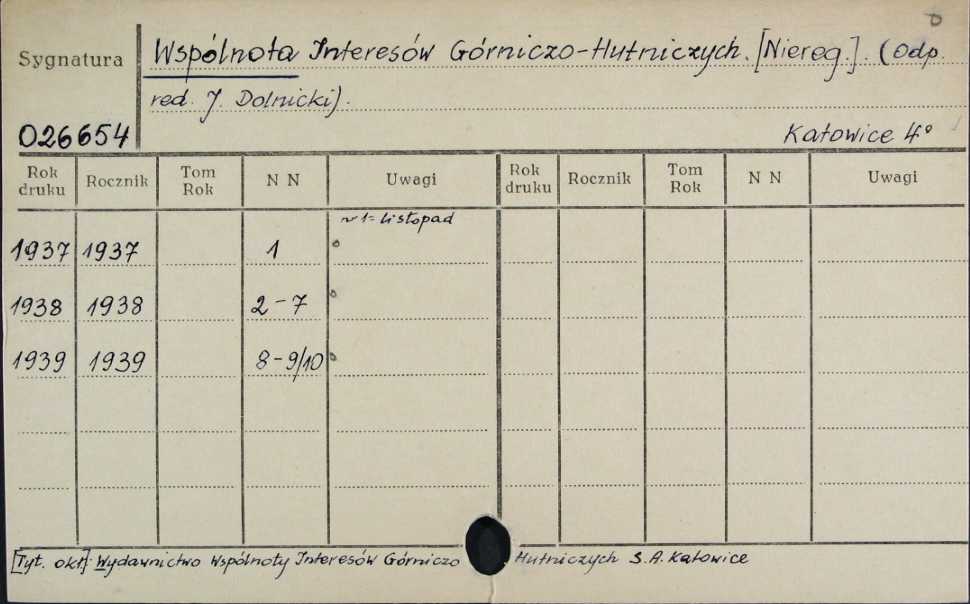 Sygnatura
Wspólnota Interesów Górniczo-Hutniczych. [Niereg.]. (Odp.
red. J. Dolnicki).
026654
Katowice 4°
Rok druku Rocznik Tom Rok N N Uwagi Rok druku Rocznik Tom Rok N N Uwagi
nr 1 = listopad
1937 1937 1
1938 1938 2-7
1939 1939 8-9/10
[Tyt. okł]: Wydawnictwo Wspólnoty Interesów Górniczo Hutniczych S.A. Katowice